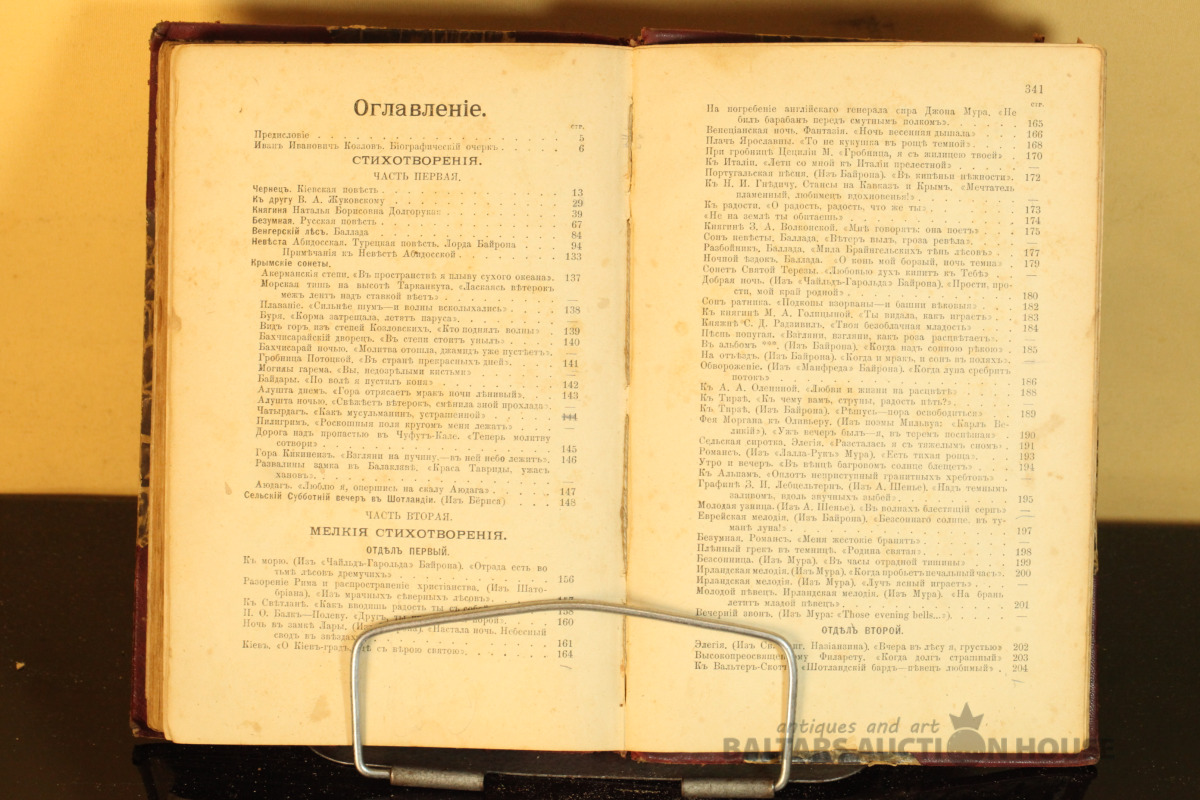 Оглавленіе.
стр.
Предисловіе 5
Иванъ Ивановичъ Козловъ. Біографическій очеркъ 6
СТИХОТВОРЕНІЯ.
ЧАСТЬ ПЕРВАЯ.
Чернецъ. Кіевская повѣсть 13
Къ другу В. А. Жуковскому 29
Княгиня Наталья Борисовна Долгорукая 39
Безумная. Русская повѣсть 67
Венгерскій лѣсъ. Баллада 84
Невѣста Абидосская. Турецкая повѣсть. Лорда Байрона 94
Примѣчанія къ Невѣстѣ Абидосской 133
Крымскіе сонеты,
Акерманскія степи, «Въ пространствѣ я плыву сухого океана». 137
Морская тишь на высотѣ Тарканкута, «Ласкаясь вѣтерокъ
межъ лентъ надъ ставкой вѣетъ» —
Плаваніе. «Сильнѣе шумъ—и волны всколыхались» 138
Буря, «Корма затрещала, летятъ паруса» —
Видъ горъ изъ степей Козловскихъ, «Кто поднялъ волны» 139
Бахчисарайскій дворецъ. «Въ степи стоитъ унылъ» 140
Бахчисарай ночью, «Молитва отошла, джамидъ уже пустѣетъ». —
Гробница Потоцкой, «Въ странѣ прекрасныхъ дней» 141
Могилы гарема, «Вы, недозрѣлыми кистьми» —
Байдары. «По волѣ я пустилъ коня» 142
Алушта днемъ. «Гора отрясаетъ мракъ ночи лѣнивый» 143
Алушта ночью, «Свѣжѣетъ вѣтерокъ, смѣнила зной прохлада» —
Чатырдагъ. «Какъ мусульманинъ, устрашенной» 144
Пилигримъ, «Роскошныя поля кругомъ меня лежатъ» —
Дорога надъ пропастью въ Чуфутъ-Кале. «Теперь молитву
сотвори» 145
Гора Кикинеизъ. «Взгляни на пучину,—въ ней небо лежитъ». 146
Развалины замка въ Балаклавѣ, «Краса Тавриды, ужасъ
хановъ» —
Аюдагъ. «Люблю я, опершись на скалу Аюдага» 147
Сельскій Субботній вечеръ въ Шотландіи. (Изъ Бёрнса) 148
ЧАСТЬ ВТОРАЯ.
МЕЛКІЯ СТИХОТВОРЕНІЯ.
ОТДѢЛЪ ПЕРВЫЙ.
Къ морю. (Изъ «Чайльдъ-Гарольда» Байрона). «Отрада есть во
тьмѣ лѣсовъ дремучихъ» 156
Разореніе Рима и распространеніе христіанства, (Изъ Шато-
бріана), «Изъ мрачныхъ сѣверныхъ лѣсовъ» 157
Къ Свѣтланѣ. «Какъ вводишь радость ты съ собой» 158
П. О. Балкъ—Полеву. «Другъ, ты порой» 160
Ночь въ замкѣ Лары, (Изъ Байрона). «Настала ночь. Небесный
сводъ въ звѣздахъ» 161
Кіевъ, «О Кіевъ-градъ, гдѣ съ вѣрою святою» 164
341
стр.
На погребеніе англійскаго генерала сира Джона Мура, «Не
билъ барабанъ передъ смутнымъ полкомъ» 165
Венеціанская ночь, Фантазія. «Ночь весенняя дышала» 166
Плачъ Ярославны. «То не кукушка въ рощѣ темной» 168
При гробницѣ Цециліи М, «Гробница, я съ жилицею твоей» 170
Къ Италіи, «Лети со мной къ Италіи прелестной» —
Португальская пѣсня, (Изъ Байрона). «Въ кипѣньи нѣжности». 172
Къ Н. И. Гнѣдичу, Стансы на Кавказъ и Крымъ, «Мечтатель
пламенный, любимецъ вдохновенья!» —
Къ радости, «О радость, радость, что же ты» 173
«Не на землѣ ты обитаешь» 174
Княгинѣ З. А. Волконской. «Мнѣ говорятъ: она поетъ» 175
Сонъ невѣсты, Баллада, «Вѣтеръ вылъ, гроза ревѣла» —
Разбойникъ, Баллада, «Мила Брайнгельскихъ тѣнь лѣсовъ» 177
Ночной ѣздокъ. Баллада. «О конь мой борзый, ночь темна» 179
Сонетъ Святой Терезы. «Любовью духъ кипитъ къ Тебѣ» —
Добрая ночь. (Изъ «Чайльдъ-Гарольда» Байрона), «Прости, про-
сти, мой край родной» 180
Сонъ ратника. «Подкопы взорваны—и башни вѣковыя» 182
Къ княгинѣ М. А. Голицыной, «Ты видала, какъ играетъ» 183
Княжнѣ С. Д. Радзивилъ, «Твоя безоблачная младость» 184
Пѣснь попугая, «Взгляни, взгляни, какъ роза расцвѣтаетъ» —
Въ альбомъ ***, (Изъ Байрона), «Когда надъ сонною рѣкою» 185
На отъѣздъ. (Изъ Байрона). «Когда и мракъ, и сонъ въ поляхъ» —
Обвороженіе. (Изъ «Манфреда» Байрона). «Когда луна сребритъ
потокъ» 186
Къ А. А. Олениной, «Любви и жизни на расцвѣтѣ» 188
Къ Тирзѣ, «Къ чему вамъ, струны, радость пѣть?» —
Къ Тирзѣ, (Изъ Байрона), «Рѣшусь—пора освободиться» 189
Фея Моргана къ Оливьеру. (Изъ поэмы Мильвуа: «Карлъ Ве-
ликій»), «Ужъ вечеръ былъ—я, въ теремъ поспѣшая» 190
Сельская сиротка, Элегія, «Разсталась я съ тяжелымъ сномъ» 191
Романсъ, (Изъ «Лалла-Рукъ» Мура), «Есть тихая роща» 193
Утро и вечеръ. «Въ вѣнцѣ багровомъ солнце блещетъ» 194
Къ Альпамъ, «Оплотъ неприступный гранитныхъ хребтовъ» —
Графинѣ З. И. Лебцельтернъ, (Изъ А. Шенье), «Надъ темнымъ
заливомъ, вдоль звучныхъ зыбей» 195
Молодая узница, (Изъ А. Шенье), «Въ волнахъ блестящій серпъ» —
Еврейская мелодія, (Изъ Байрона), «Безсоннаго солнце, въ ту-
манѣ луна!» 197
Безумная. Романсъ. «Меня жестокіе бранятъ» —
Плѣнный грекъ въ темницѣ, «Родина святая» 198
Безсонница. (Изъ Мура), «Въ часы отрадной тишины» 199
Ирландская мелодія. (Изъ Мура), «Когда пробьетъ печальный часъ». 200
Ирландская мелодія. (Изъ Мура), «Лучъ ясный играетъ» —
Молодой пѣвецъ, Ирландская мелодія, (Изъ Мура). «На брань
летитъ младой пѣвецъ» 201
Вечерній звонъ. (Изъ Мура: «Those evening bells...») —
ОТДѢЛЪ ВТОРОЙ.
Элегія, (Изъ Св. Назіанзина), «Вчера въ лѣсу я, грустью» 202
Высокопреосвященному Филарету, «Когда долгъ страшный» 203
Къ Вальтеръ-Скотту, «Шотландскій бардъ—пѣвецъ любимый» 204
antiques and art
BALTARS AUCTION HOUSE